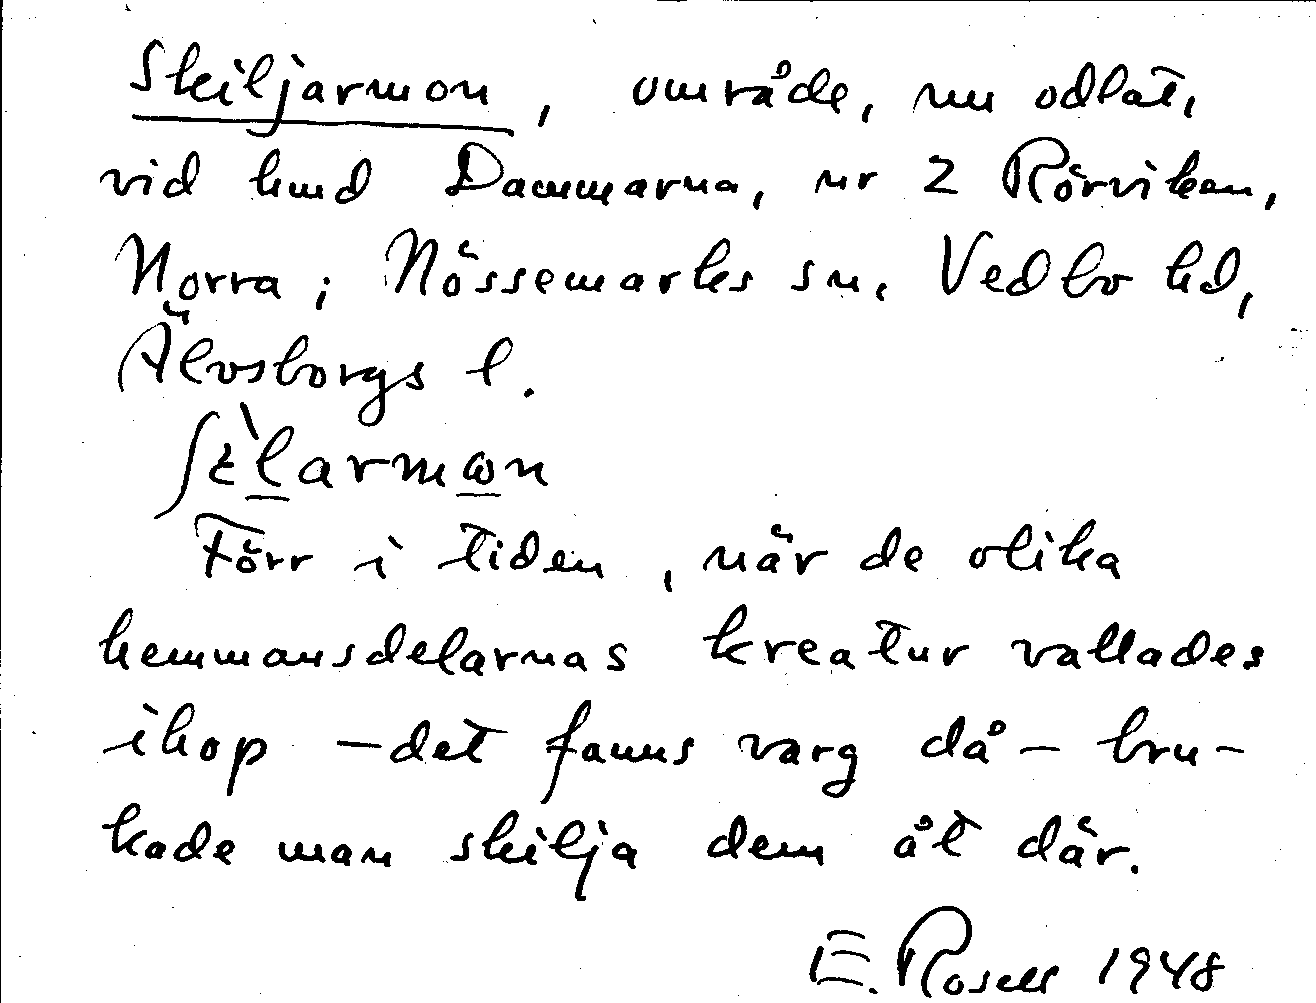 Skiljarmon, område, nu odlat,
vid hmd Dammarna, nr 2 Rörviken,
Norra; Nössemarks sn, Vedbo hd,
Älvsborgs l.
ʃɛ̀larmωn
Förr i tiden, när de olika
hemmansdelarnas kreatur vallades
ihop – det fanns varg då – bru-
kade man skilja dem åt där.
E. Rosell 1948